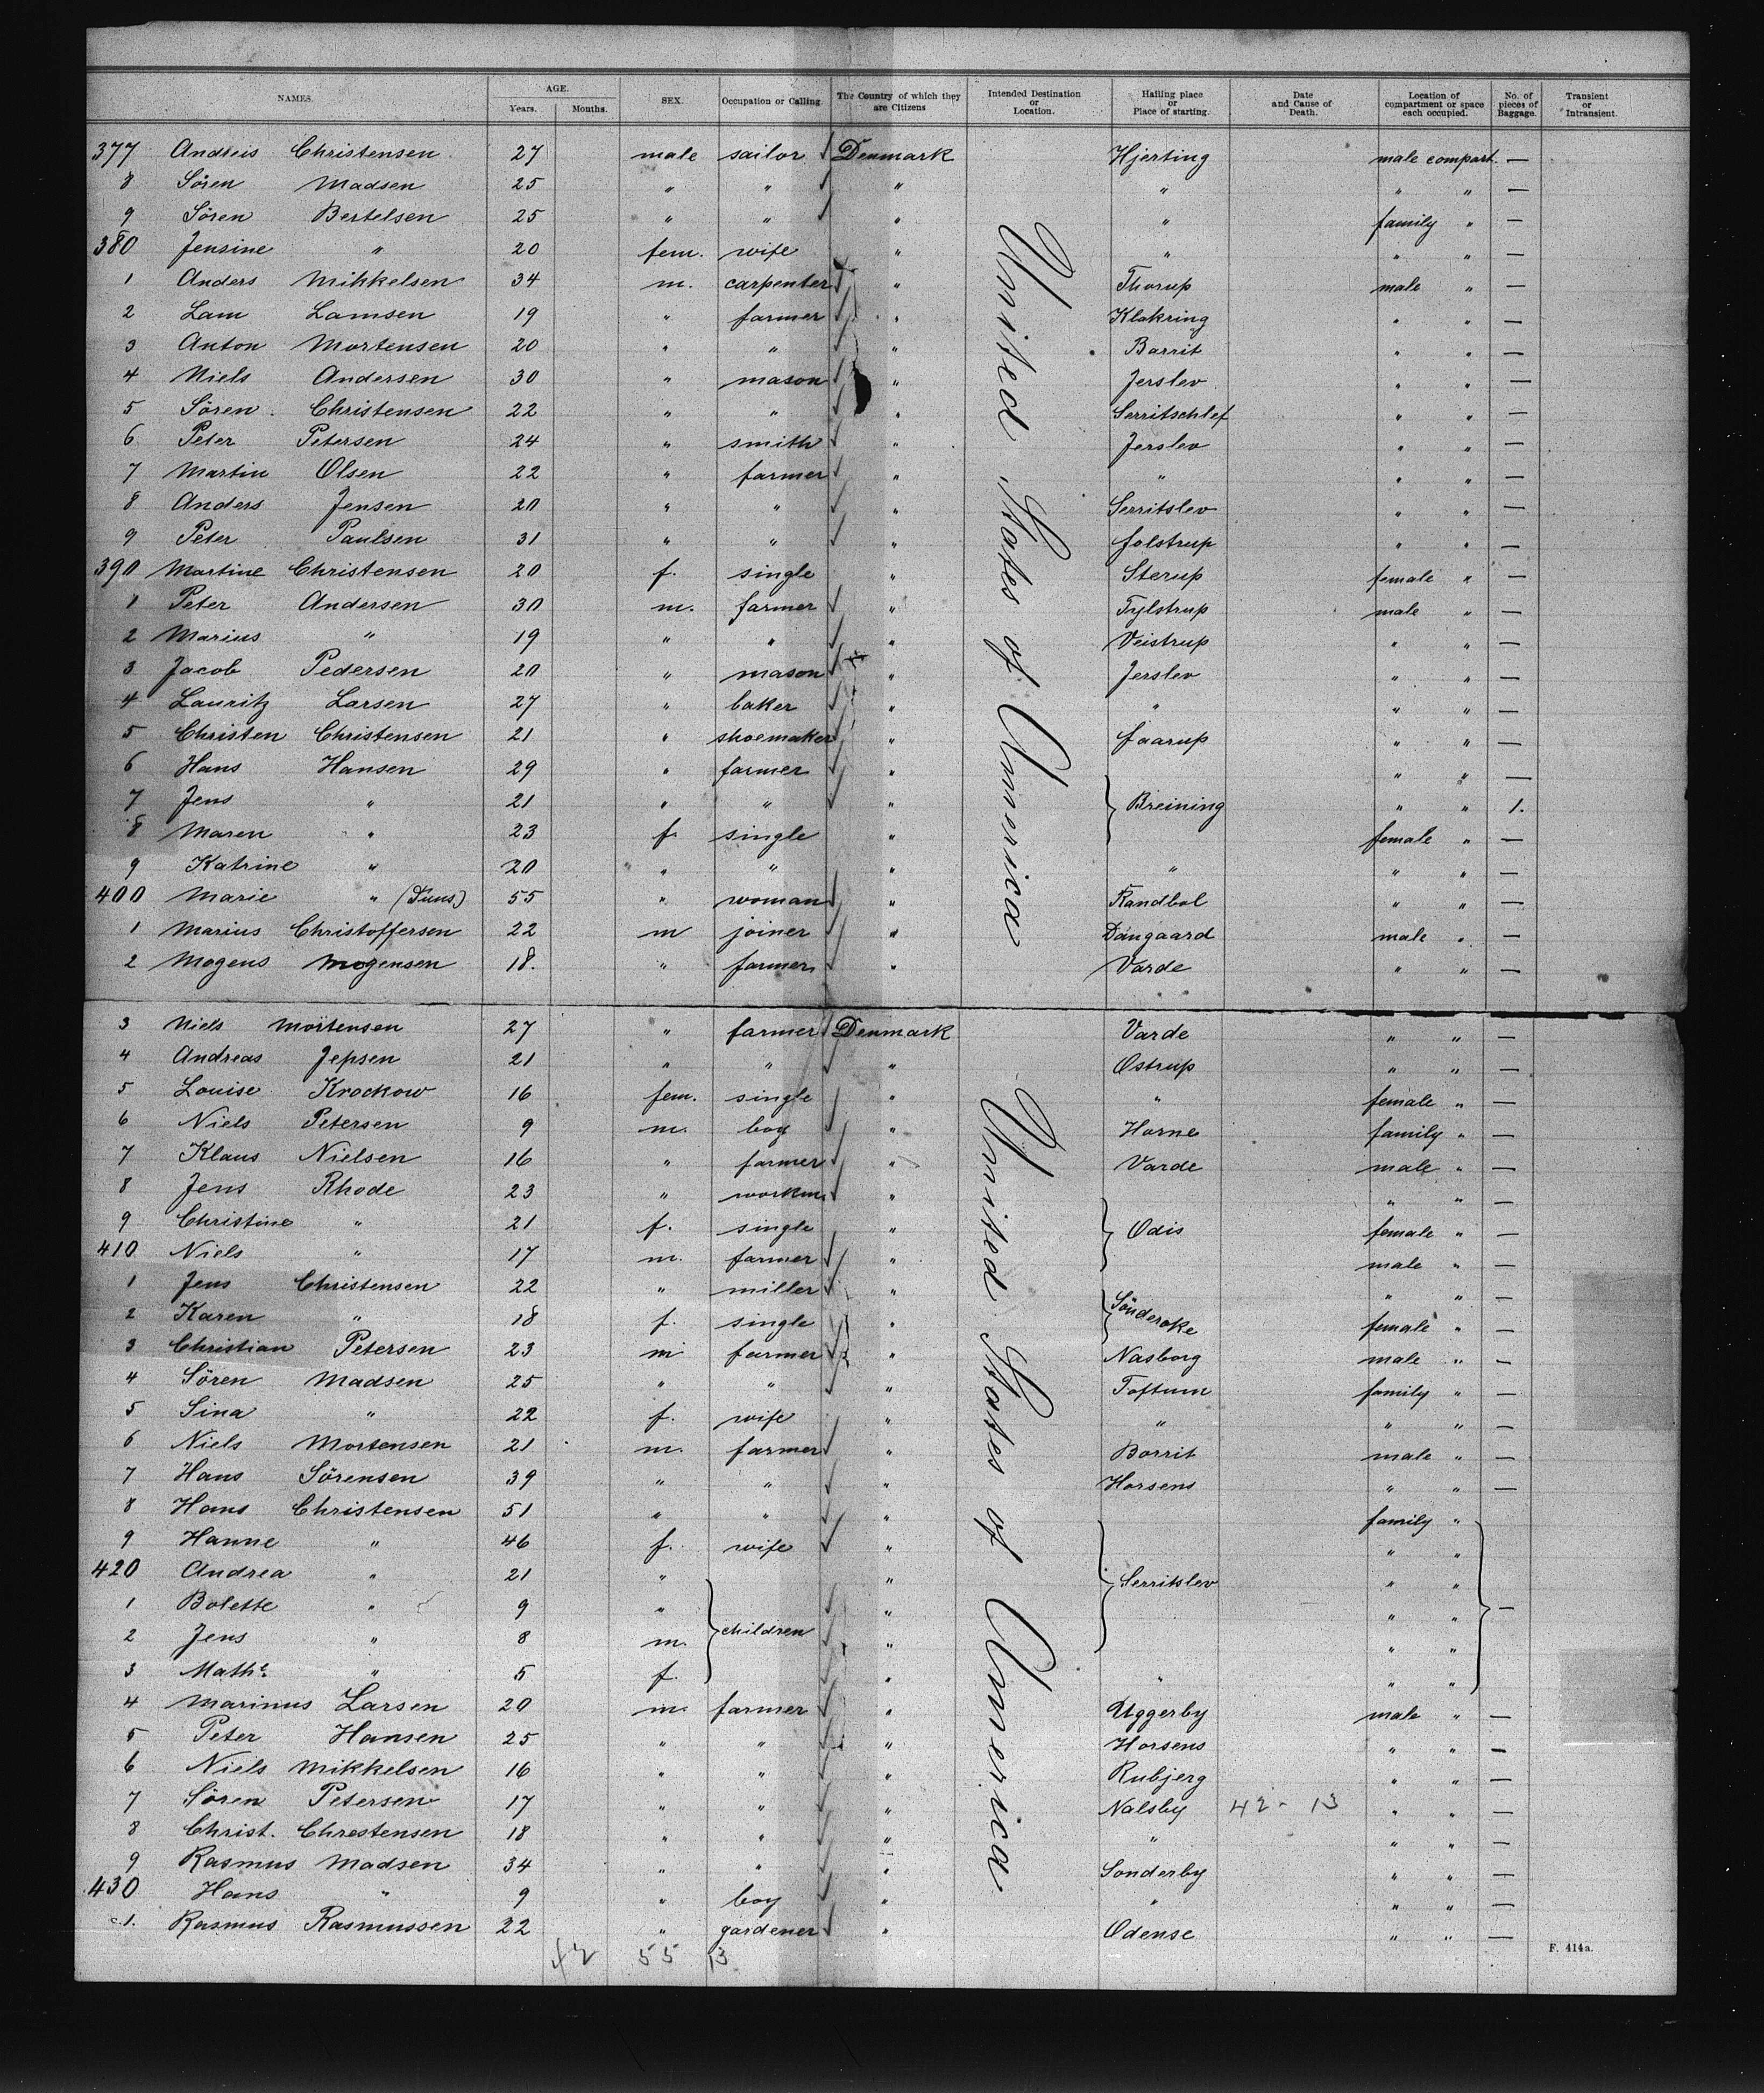 NAMES. AGE. Years. Months. SEX. Occupation or Calling. The Country of which they are Citizens Intended Destination or Location. Hailing place or Place of starting. Date and Cause of Death. Location of compartment or space each occupied. No. of pieces of Baggage. Transient or Intransient.
377 Andreis Christensen 27 male sailor Denmark Hjerting male compart. —
8 Sören Madsen 25 " " " " " " —
9 Sören Bertelsen 25 " " " " family " —
380 Jensine " 20 fem. wife " " " " —
1 Anders Mikkelsen 34 m. carpenter " Thorup male " —
2 Lam Lamsen 19 " farmer " Klakring " " —
3 Anton Mortensen 20 " " " Barrit " " —
4 Niels Andersen 30 " mason " Jerslev " " —
5 Sören Christensen 22 " " " Serritschlef " " —
6 Peter Petersen 24 " smith " Jerslev " " —
7 Martin Olsen 22 " farmer " " " " —
8 Anders Jensen 20 " " " Serritslev " " —
9 Peter Paulsen 31 " " " Jolstrup " " —
390 Martine Christensen 20 f. single " Sterup female " —
1 Peter Andersen 30 m. farmer " Tylstrup male " —
2 Marius " 19 " " " Veistrup " " —
3 Jacob Pedersen 20 " mason " Jerslev " " —
4 Lauritz Larsen 27 " baker " " " " —
5 Christen Christensen 21 " shoemaker " Faarup " " —
6 Hans Hansen 29 " farmer " " " —
7 Jens " 21 " " " Breining " " 1.
8 Maren " 23 f. single " female " —
9 Katrine " 20 " " " " " " —
400 Marie " 55 " woman " Randbol " " —
1 Marius Christoffersen 22 m joiner " Dangaard male " —
2 Mogens Mogensen 18. " farmer " Varde " " —
United States of America
3 Niels Mortensen 27 " farmer Denmark Varde " " —
4 Andreas Jepsen 21 " " " Ostrup " " —
5 Louise Krockow 16 fem. single " " female " —
6 Niels Petersen 9 m. boy " Horne family " —
7 Klaus Nielsen 16 " farmer " Varde male " —
8 Jens Rhode 23 " workm. " " " —
9 Christine " 21 f. single " Odis female " —
410 Niels " 17 m. farmer " male " —
1 Jens Christensen 22 " miller " " " —
2 Karen " 18 f. single " Sönderoke female " —
3 Christian Petersen 23 m farmer " Nasborg male " —
4 Sören Madsen 25 " " " Toftum family " —
5 Sina " 22 f. wife " " " " —
6 Niels Mortensen 21 m. farmer " Borrit male " —
7 Hans Sörensen 39 " " " Horsens " " —
8 Hans Christensen 51 " " " family "
9 Hanne " 46 f. wife " " "
420 Andrea " 21 " " Serritslev " "
1 Bolette " 9 " " " " —
2 Jens " 8 m. children " " "
3 Mathe. " 5 f. " " " "
4 Marinus Larsen 20 m. farmer " Uggerby male " —
5 Peter Hansen 25 " " " Horsens " " —
6 Niels Mikkelsen 16 " " " Rubjerg " " —
7 Sören Petersen 17 " " " Nalsby 42 - 13 " " —
8 Christ. Chrestensen 18 " " " " " " —
9 Rasmus Madsen 34 " " " Sonderby " " —
430 Hans " 9 " boy " " " " —
1. Rasmus Rasmussen 22 " gardener " Odense " " —
United States of America
42 55 13
F. 414a.